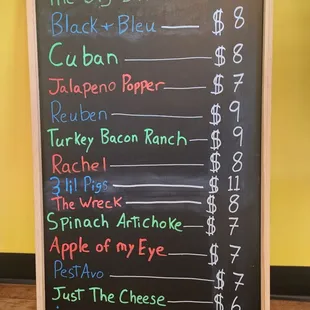 Black + Bleu $ 8
Cuban $ 8
Jalapeno Popper $ 7
Reuben $ 9
Turkey Bacon Ranch $ 9
Rachel $ 8
3 lil Pigs $ 11
The Wreck $ 8
Spinach Artichoke $ 7
Apple of my Eye $ 7
PestAvo $ 7
Just The Cheese $ 6